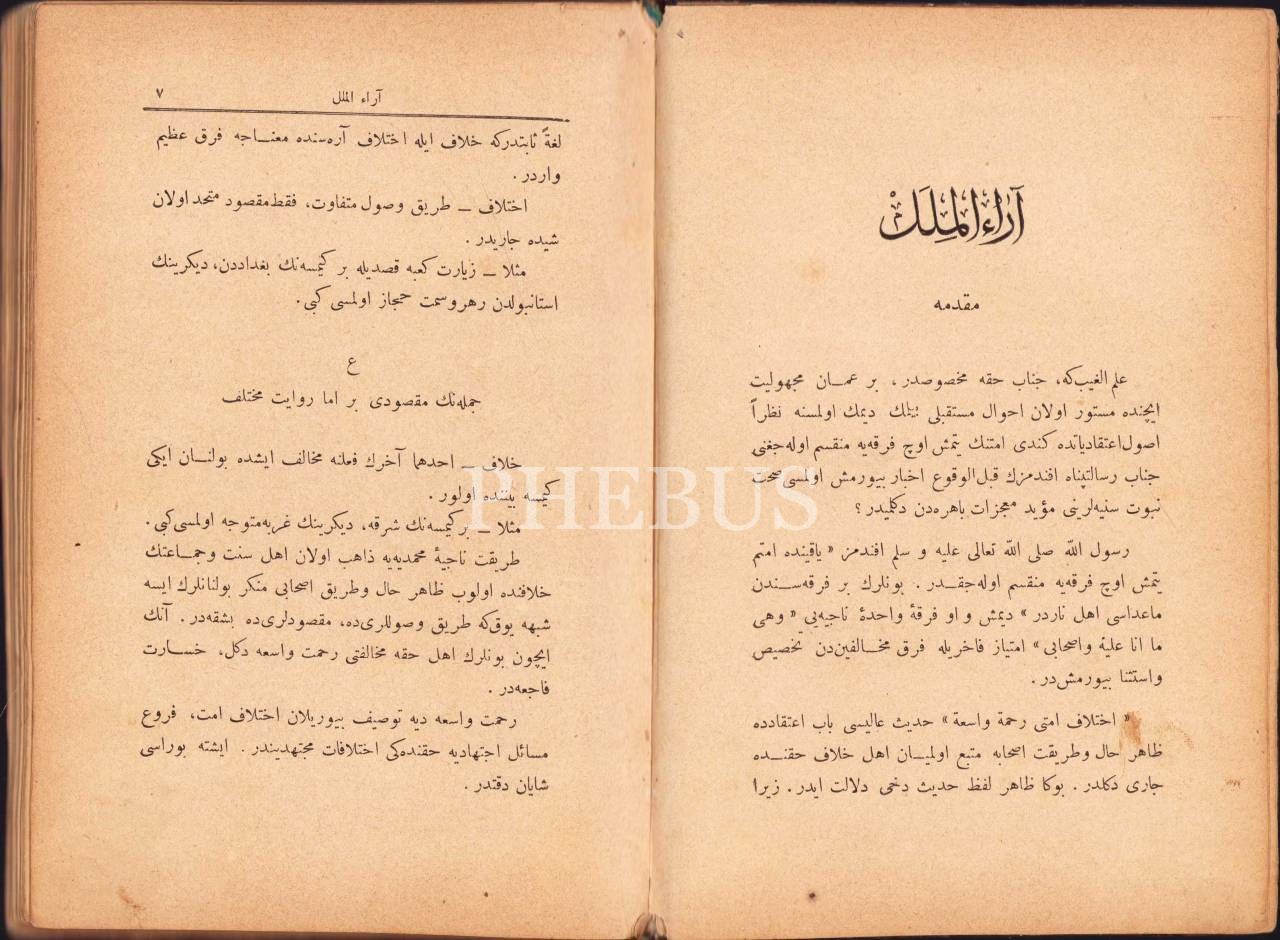 آراء الملل
مقدمه
علم الغیب‌که، جناب حقه مخصوصدر، بر عمـــان مجهولیت
ایچنده مستور اولان احوال مستقبلی بیلك دیمك اولمسنه نظراً
اصول اعتقادیاتده کندی امتنك یتمش اوچ فرقه‌یه منقسم اوله‌جغنی
جناب رسالتپناه افندمزك قبل‌الوقوع اخبار بیورمش اولمسی صحت
نبوت سنیه‌لرینی مؤید معجزات باهره‌دن دکلمیدر ؟
رسول الله صلی الله تعالی علیه و سلم افندمز « یاقینده امتم
یتمش اوچ فرقه‌یه منقسم اوله‌جقـدر . بونلرك بر فرقه‌ســندن
ماعداسی اهل ناردر » دیمش و او فرقۀ واحدۀ ناجیه‌یی « وهی
ما انا علیه واصحابی » امتیاز فاخریله فرق مخـــالفین‌دن تخصیص
واستثنا بیورمش‌در .
« اختلاف امتی رحمة واسعة » حدیث عالیسی باب اعتقادده
ظاهر حال وطریقت اصحابه متبع اولمیـــان اهل خلاف حقنـــده
جاری دکلدر . بوکا ظاهر لفظ حدیث دخی دلالت ایدر . زیرا
آراء الملل
٧
لغةً ثابتدرکه خلاف ایله اختلاف آره‌سنده معنـــاجه فرق عظیم
واردر .
اختلاف ــ طریق وصول متفاوت، فقط مقصود متحد اولان
شیده جاریدر .
مثلا ــ زیارت کعبه قصدیله بر کیمسه‌نك بغداددن، دیکرینك
استانبولدن رهرو سمت حجاز اولمسی کبی .
ع
جمله‌نك مقصودی بر اما روایت مختلف
خلاف ــ احدهما آخرك فعلنه مخالف ایشده بولنـــان ایکی
کیمسه بیننده اولور .
مثلا ــ بر کیمسه‌نك شرقه، دیکرینك غربه متوجه اولمسی کبی .
طریقت ناجیۀ محمدیه‌یه ذاهب اولان اهل سنت وجمـــاعتك
خلافنده اولوب ظاهر حال وطریق اصحابی منکر بولنانلرك ایسه
شبهه یوق‌که طریق وصوللری‌ده، مقصودلری‌ده بشقه‌در . آنك
ایچون بونلرك اهل حقه مخالفتی رحمت واسعه دکل، خسارت
فاجعه‌در .
رحمت واسعه دیه توصیف بیوریلان اختلاف امت، فروع
مسائل اجتهادیه حقنده‌کی اختلافات مجتهدیندر . ایشته بوراسی
شایان دقتدر .
PHEBUS